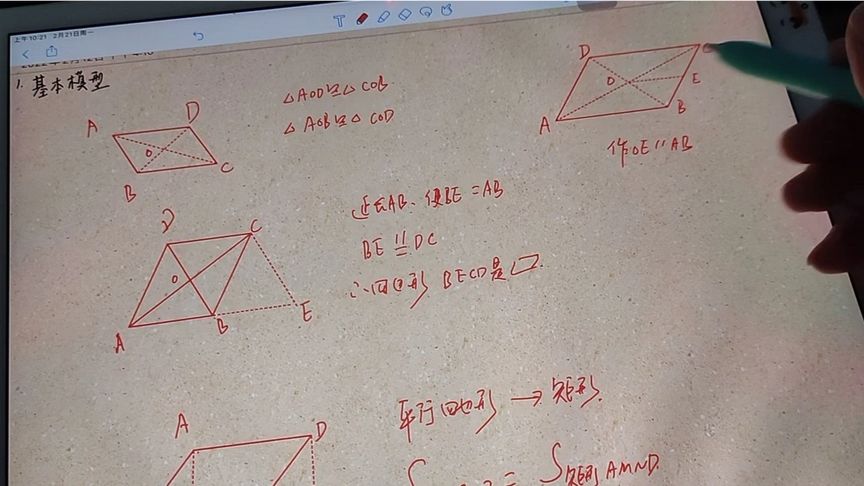 上午10:21 2月21日周一
1. 基本模型
A D
O
B C
△AOD≌△COB
△AOB≌△COD
D
O E
A B
作OE∥AB
D C
O
A B E
延长AB、使BE=AB
BE∥=DC
∴四边形 BECD是▱.
平行四边形→矩形.
A D
S矩形AMND.